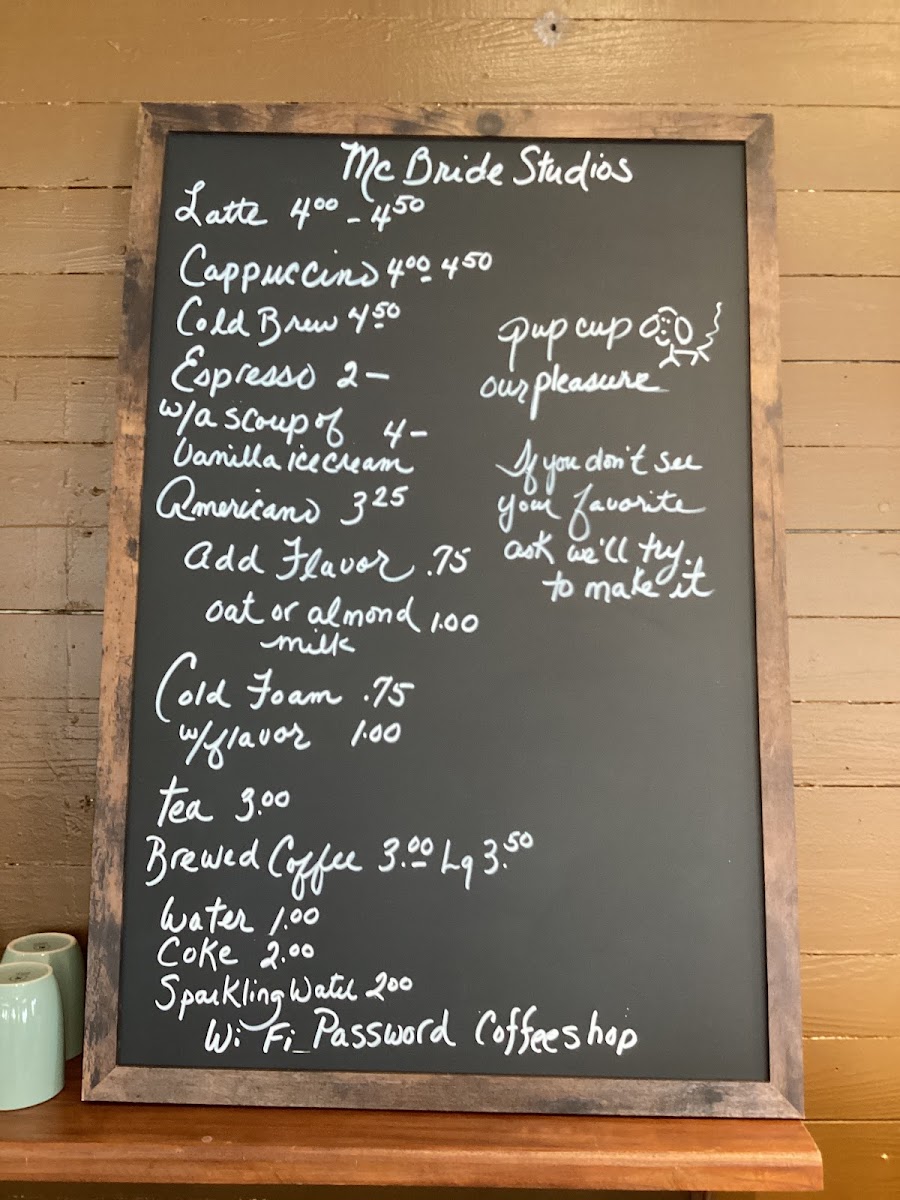 Mc Bride Studios
Latte 4.00 - 4.50
Cappuccino 4.00 4.50
Cold Brew 4.50
Espresso 2 -
w/a scoup of 4 -
Vanilla ice cream
Americano 3.25
add Flavor .75
oat or almond 1.00
milk
Cold Foam .75
w/flavor 1.00
tea 3.00
Brewed Coffee 3.00 Lg 3.50
Water 1.00
Coke 2.00
Sparkling Water 2.00
Wi Fi_Password Coffeeshop
pup cup
our pleasure
If you don't see
your favorite
ask we'll try
to make it